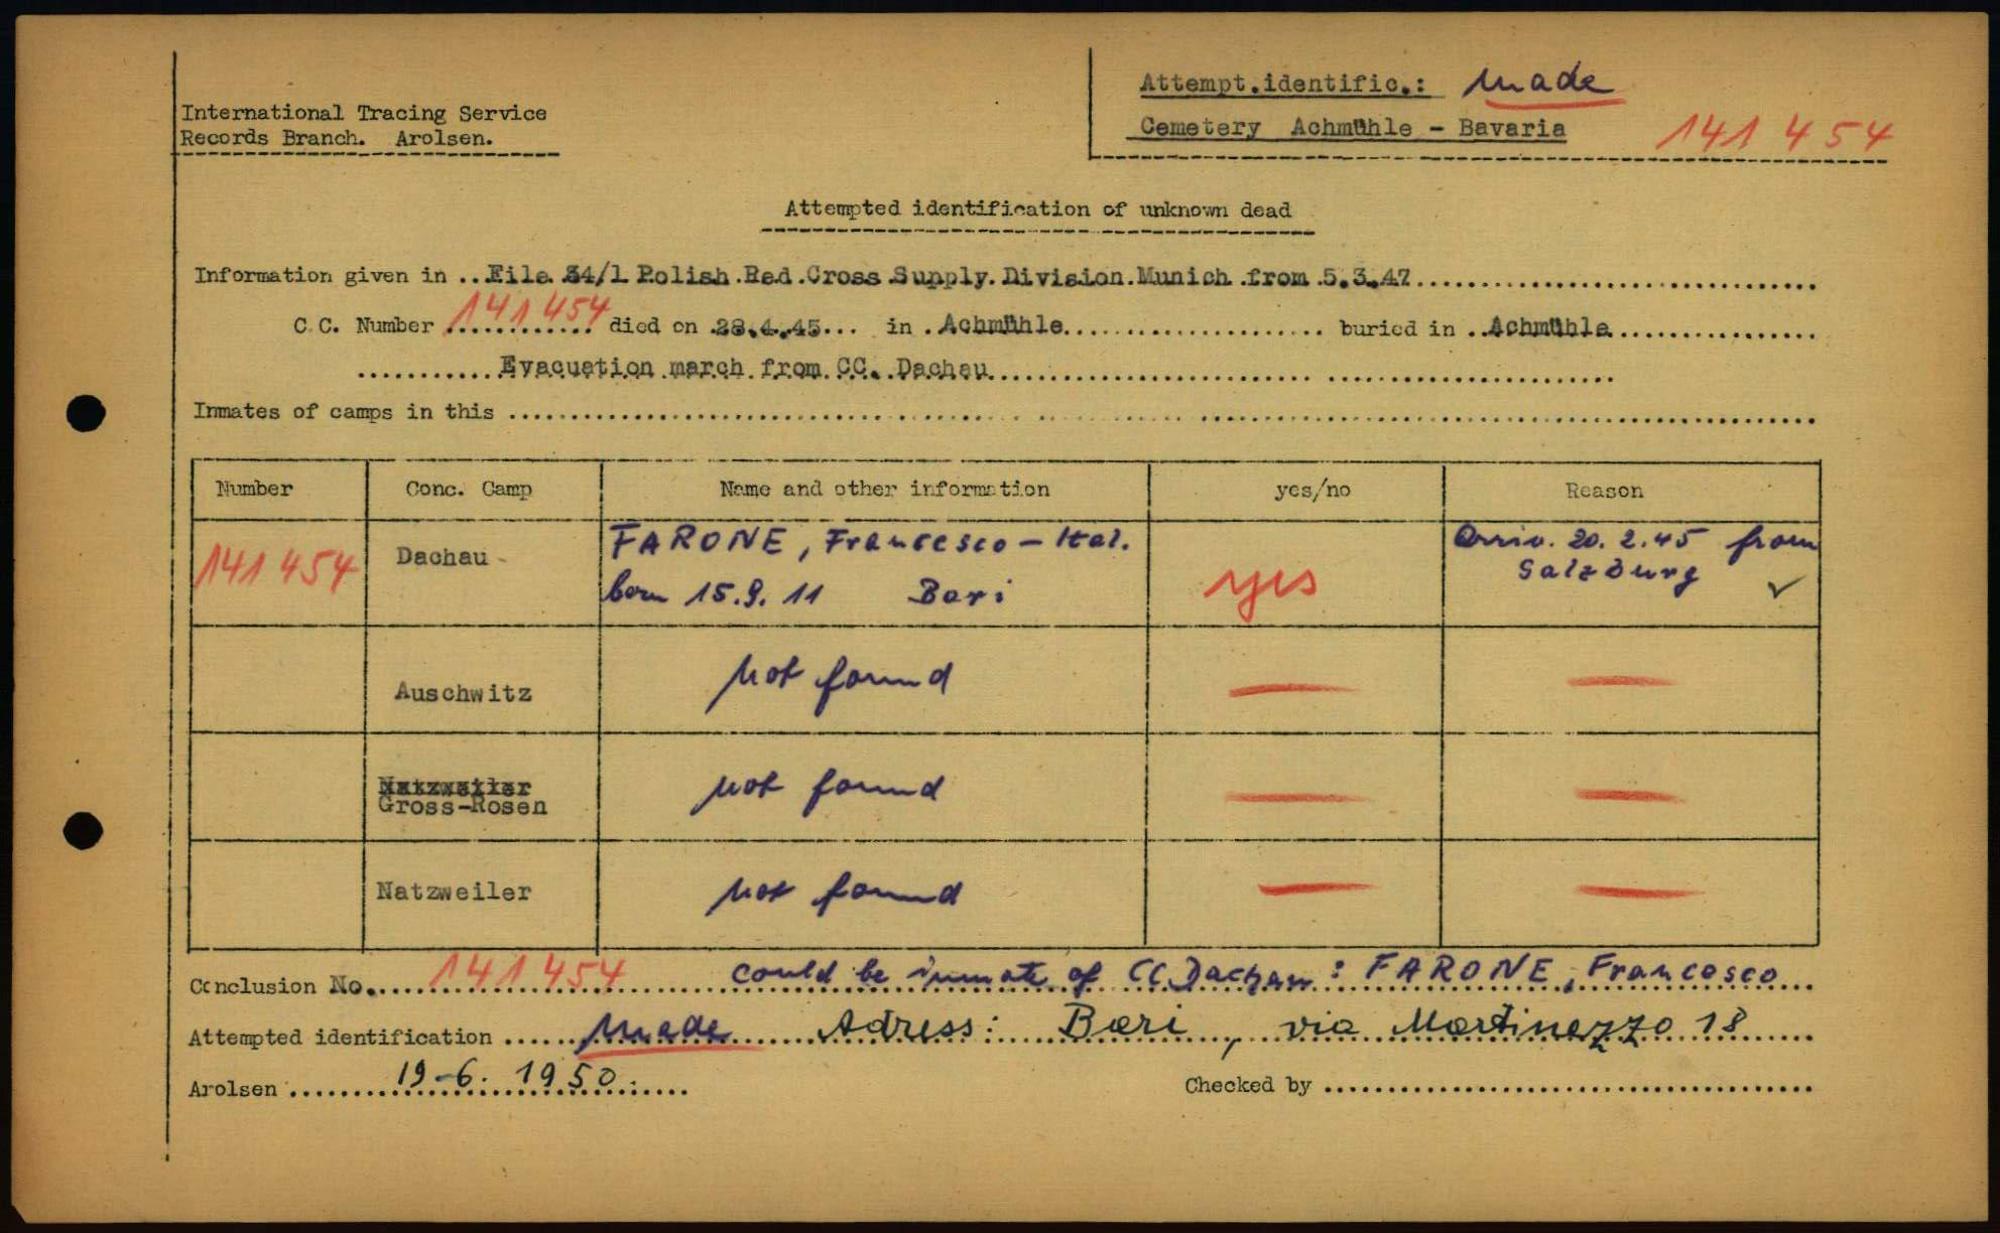 International Tracing Service
Records Branch. Arolsen.
Attempt.identific.: made
Cemetery Achmühle - Bavaria 141 454
Attempted identification of unknown dead
Information given in ..File 34/1 Polish Red Cross Supply Division Munich from 5.3.47
C.C. Number 141 454 died on 28.4.45... in .Achmühle buried in ..Achmühle
Evacuation march from CC. Dachau
Inmates of camps in this
Number Conc. Camp Name and other information yes/no Reason
141 454 Dachau - FARONE, Francesco - Ital. born 15.9.11 Bari yes Arriv. 20.2.45 from Salzburg ✓
Auschwitz not found — —
Natzweiler
Gross-Rosen not found — —
Natzweiler not found — —
Conclusion No. 141 454 could be inmate of CC Dachau: FARONE, Francesco
Attempted identification made Adress: Bari, via Martinezzo 18
Arolsen 19-6. 1950. Checked by